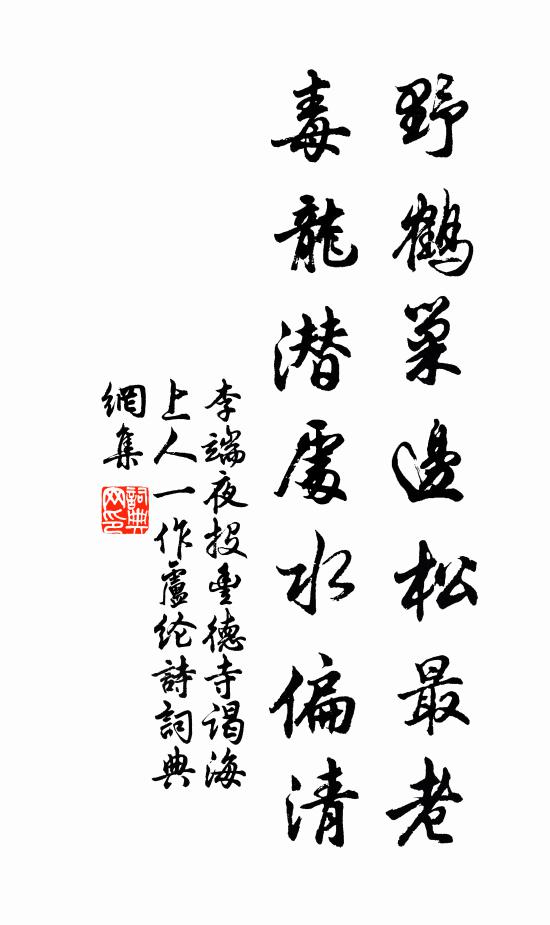 野鶴巢邊松最老
毒龍潛處水偏清
李端夜投豐德寺謁海
上人一作盧纶詩詞典
網集
詞典
网印